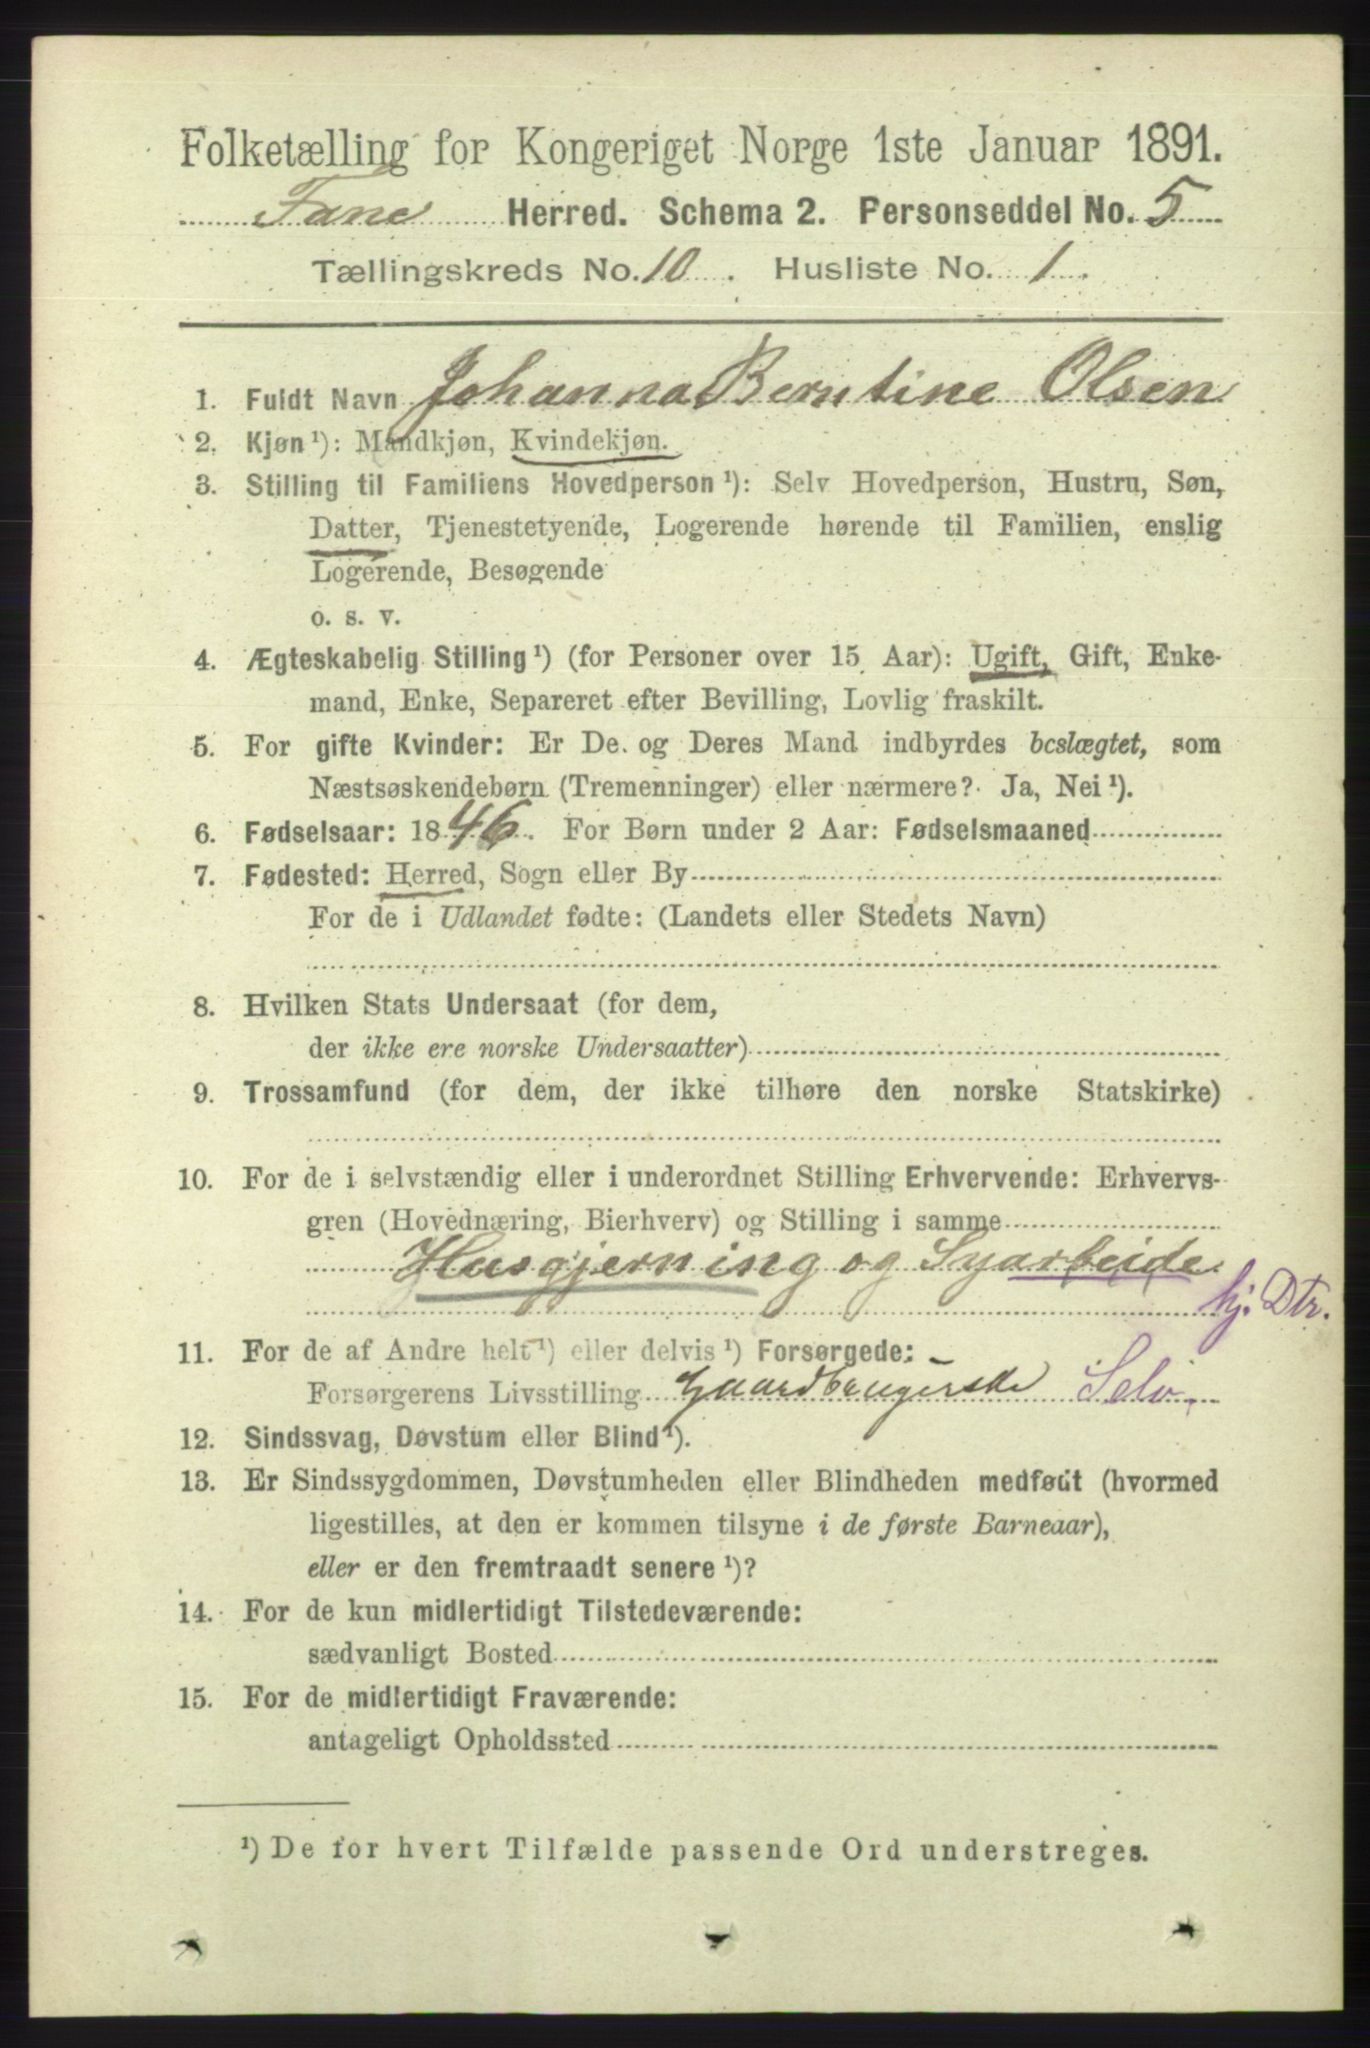 Folketælling for Kongeriget Norge 1ste Januar 1891.
Fane Herred. Schema 2. Personseddel No. 5
Tællingskreds No. 10. Husliste No. 1.
1. Fuldt Navn Johanna Berntine Olsen
2. Kjøn¹): Mandkjøn, Kvindekjøn.
3. Stilling til Familiens Hovedperson¹): Selv Hovedperson, Hustru, Søn,
Datter, Tjenestetyende, Logerende hørende til Familien, enslig
Logerende, Besøgende
o. s. v.
4. Ægteskabelig Stilling¹) (for Personer over 15 Aar): Ugift, Gift, Enke-
mand, Enke, Separeret efter Bevilling, Lovlig fraskilt.
5. For gifte Kvinder: Er De og Deres Mand indbyrdes beslægtet, som
Næstsøskendebørn (Tremenninger) eller nærmere? Ja, Nei¹).
6. Fødselsaar: 1846. For Børn under 2 Aar: Fødselsmaaned
7. Fødested: Herred, Sogn eller By
For de i Udlandet fødte: (Landets eller Stedets Navn)
8. Hvilken Stats Undersaat (for dem,
der ikke ere norske Undersaatter)
9. Trossamfund (for dem, der ikke tilhøre den norske Statskirke)
10. For de i selvstændig eller i underordnet Stilling Erhvervende: Erhvervs-
gren (Hovednæring, Bierhverv) og Stilling i samme
Husgjerning og Syarbeide
hj. Dtr.
11. For de af Andre helt¹) eller delvis¹) Forsørgede:
Forsørgerens Livsstilling Gaardbrugerske Selv.
12. Sindssvag, Døvstum eller Blind¹).
13. Er Sindssygdommen, Døvstumheden eller Blindheden medfødt (hvormed
ligestilles, at den er kommen tilsyne i de første Barneaar),
eller er den fremtraadt senere¹)?
14. For de kun midlertidigt Tilstedeværende:
sædvanligt Bosted
15. For de midlertidigt Fraværende:
antageligt Opholdssted
¹) De for hvert Tilfælde passende Ord understreges.